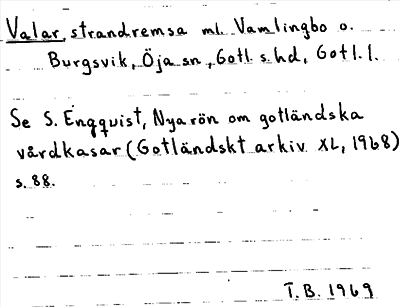 Valar, strandremsa ml. Vamlingbo o.
Burgsvik, Öja sn, Gotl. s. hd, Gotl. l.
Se S. Engquist, Nya rön om gotländska
vårdkasar (Gotländskt arkiv XL, 1968)
s. 88.
T. B. 1969